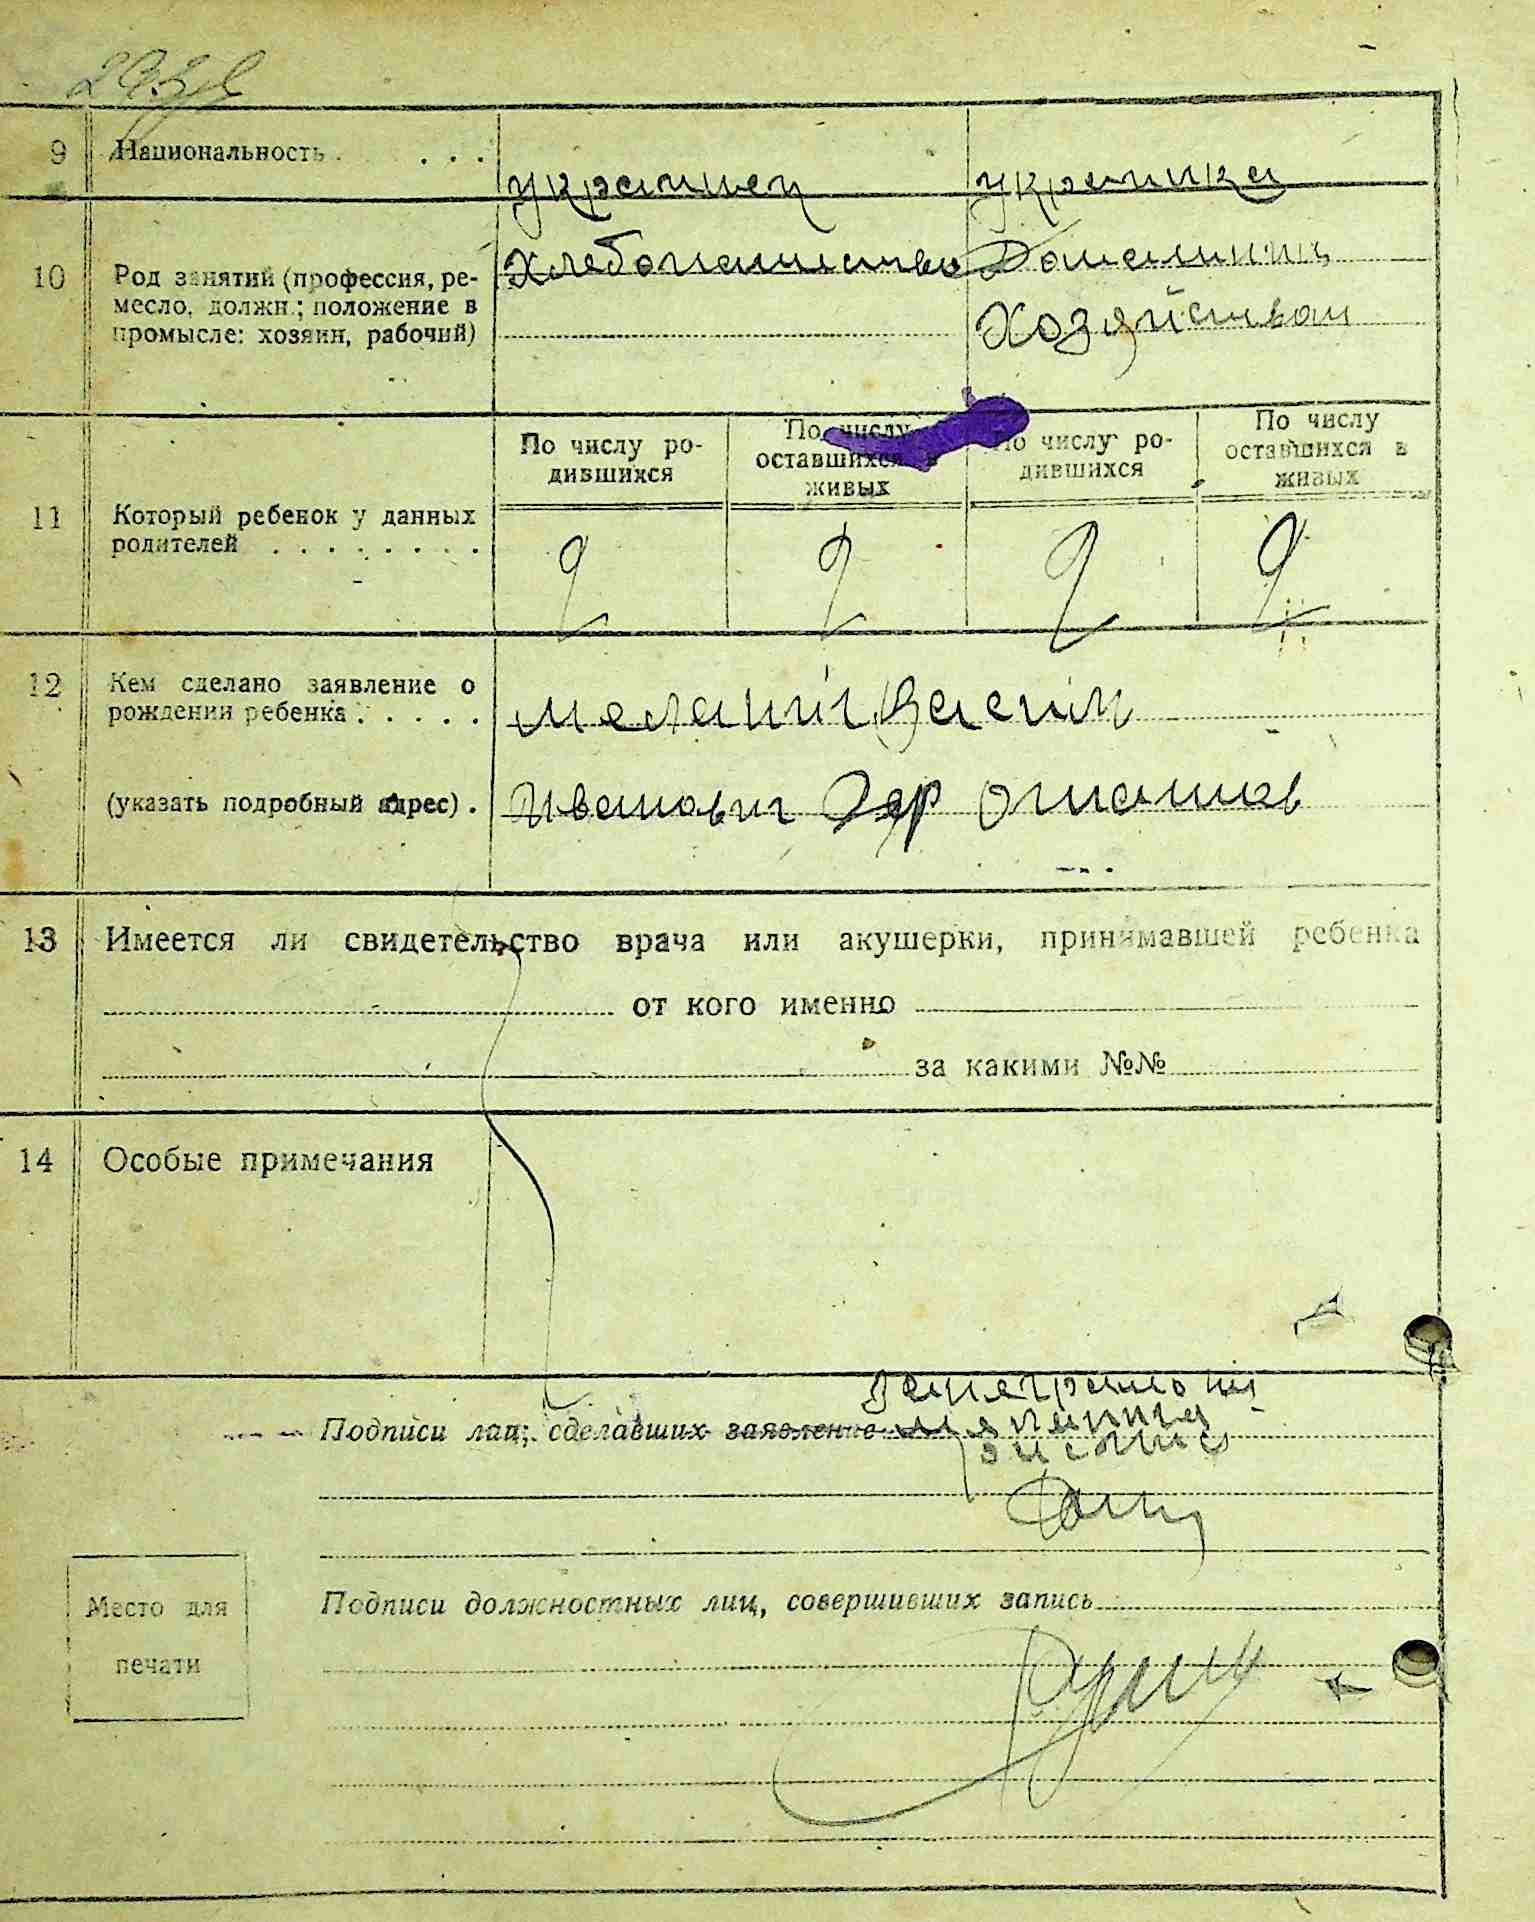 9 Национальность . . . .
украинец украинка
10 Род занятий (профессия, ре-
месло, должн.; положение в
промысле: хозяин, рабочий)
Хлебопашество Домашним
Хозяйством
11 Который ребенок у данных
родителей . . . . . . . .
По числу ро-
дившихся
По числу
оставшихся в
живых
По числу ро-
дившихся
По числу
оставшихся в
живых
2 2 2 2
12 Кем сделано заявление о
рождении ребенка . . . . .
(указать подробный адрес) .
Иванович
13 Имеется ли свидетельство врача или акушерки, принимавшей ребенка
от кого именно
за какими №№
14 Особые примечания
Подписи лиц, сделавших заявление
Подписи должностных лиц, совершивших запись
Место для
печати